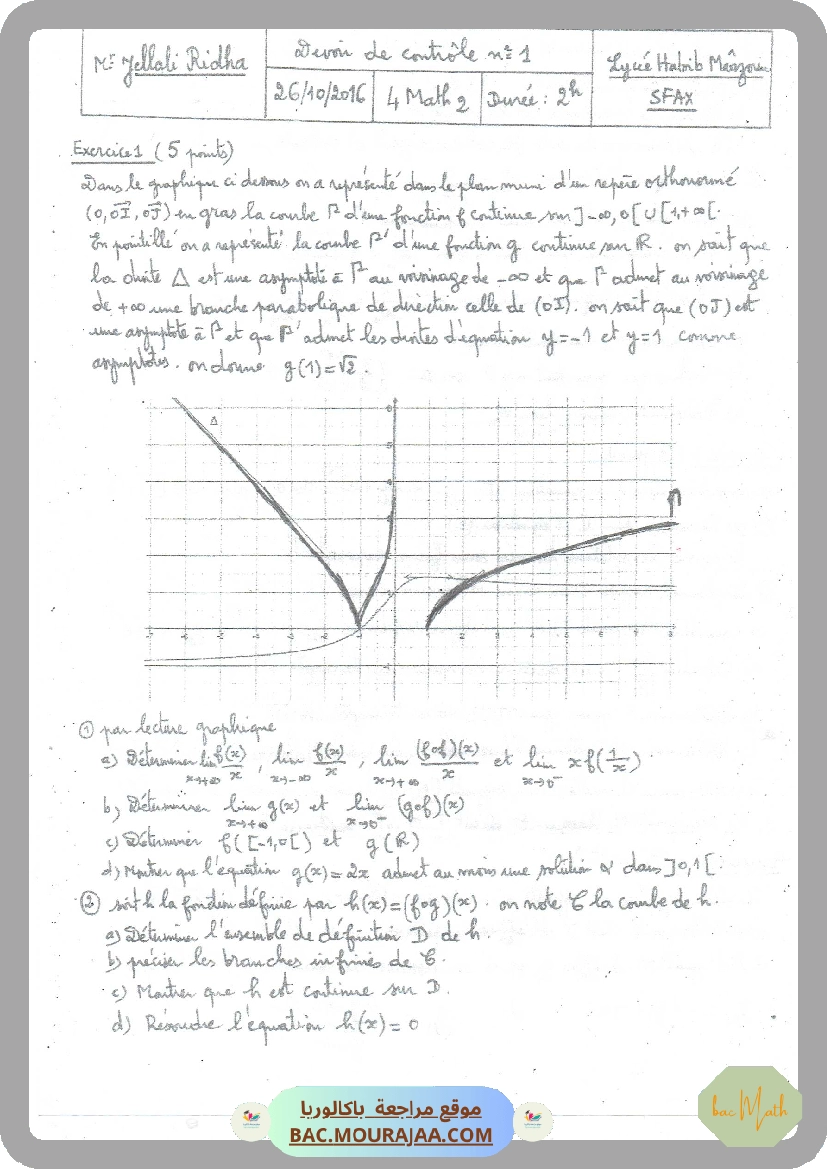 Mr Jellali Ridha
Devoir de contrôle n° 1
Lycée Habib Maâzoun
SFAX
26/10/2016
4 Math 2
Durée : 2h
Exercice 1 (5 points)
Dans le graphique ci dessous on a représenté dans le plan muni d'un repère orthonormé
(O, OI, OJ) en gras la courbe Γ d'une fonction f continue sur ]-∞,0[ ∪ [1,+∞[.
En pointillé on a représenté la courbe Γ' d'une fonction g continue sur ℝ. on sait que
la droite Δ est une asymptote à Γ au voisinage de -∞ et que Γ admet au voisinage
de +∞ une branche parabolique de direction celle de (OI). on sait que (OJ) est
une asymptote à Γ et que Γ' admet les droites d'équation y=-1 et y=1 comme
asymptotes. on donne g(1)=√2.
Δ
① par lecture graphique
a) Déterminer lim x→+∞ f(x)/x , lim x→-∞ f(x)/x , lim x→+∞ (fof)(x)/x et lim x→0⁻ x f(1/x)
b) Déterminer lim x→+∞ g(x) et lim x→0⁻ (gof)(x)
c) Déterminer f([-1,0[) et g(ℝ)
d) Montrer que l'équation g(x)=2x admet au moins une solution α dans ]0,1[.
② soit h la fonction définie par h(x)=(fog)(x). on note C la courbe de h.
a) Déterminer l'ensemble de définition D de h.
b) préciser les branches infinies de C.
c) Montrer que h est continue sur D.
d) Résoudre l'équation h(x)=0
موقع مراجعة باكالوريا
BAC.MOURAJAA.COM
bac Math